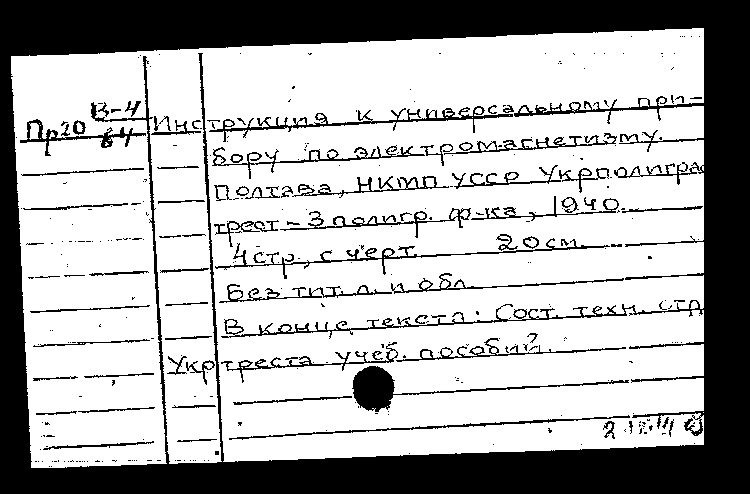 Пр20 В-4
64
Инструкция к универсальному при-
бору по электромагнетизму.
Полтава, НКМП УССР Укрполигра
трест - 3 полигр. ф-ка, 1940.
4 стр., с черт. 20 см.
Без тит. л. и обл.
В конце текста: Сост. техн. отд
Укртреста учеб. пособий.